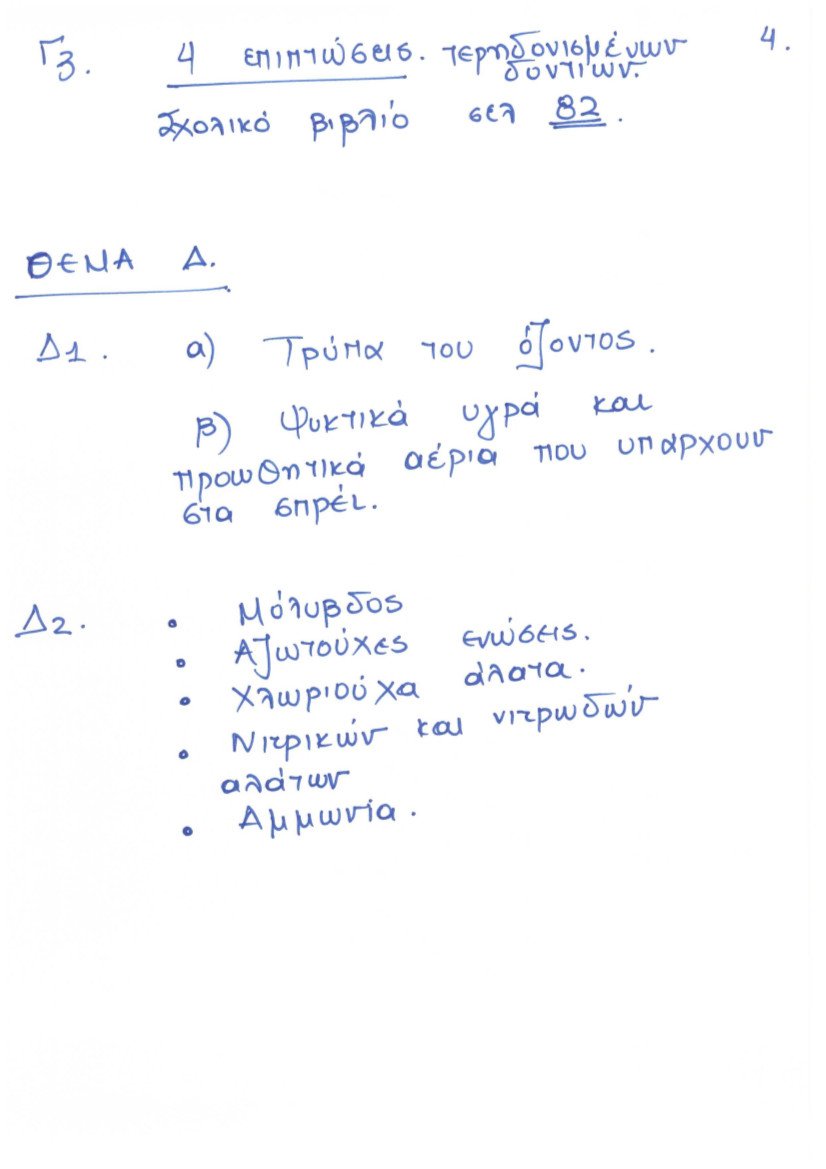 Γ3. 4 επιπτώσεις. τερηδονισμένων 4.
δοντιών.
Σχολικό βιβλίο σελ 82.
ΘΕΜΑ Δ.
Δ1. α) Τρύπα του όζοντος.
β) Ψυκτικά υγρά και
προωθητικά αέρια που υπάρχουν
στα σπρέι.
Δ2. • Μόλυβδος
• Αζωτούχες ενώσεις.
• Χλωριούχα άλατα.
• Νιτρικών και νιτρωδών
αλάτων
• Αμμωνία.